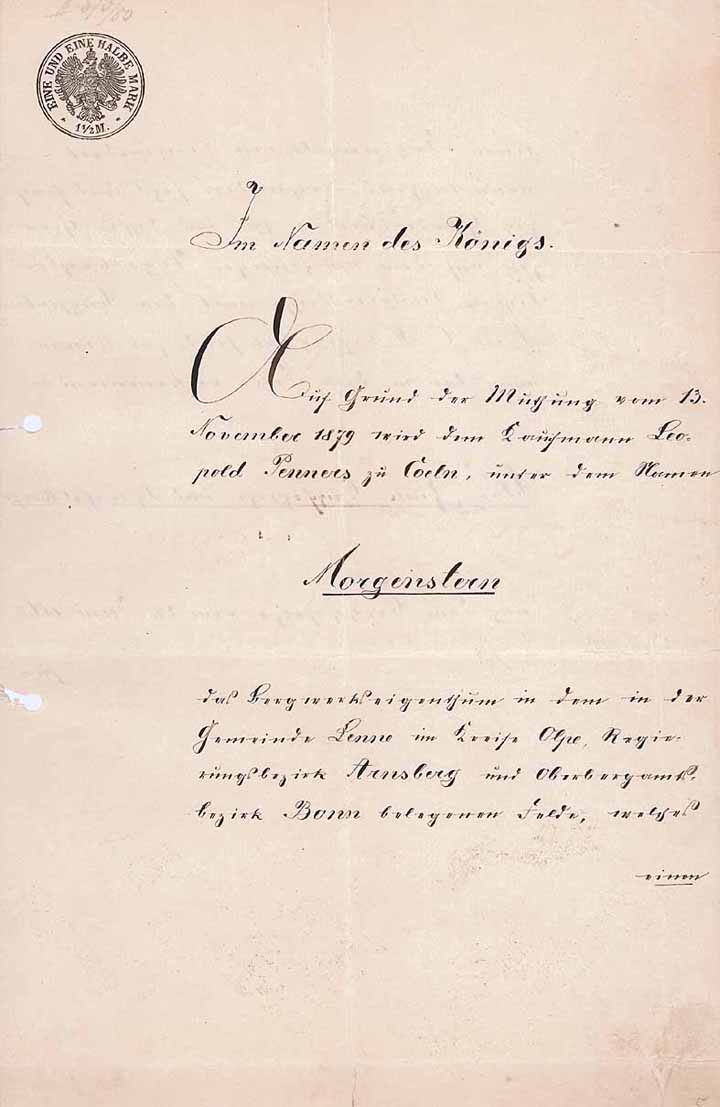 EINE UND EINE HALBE MARK
1½ M.
Im Namen des Königs.
Auf Grund der Muthung vom 13.
November 1879 wird dem Kaufmann Leo-
pold Penners zu Coeln, unter dem Namen
Morgenstern
das Bergwerkseigenthum in dem in der
Gemeinde Lenne im Kreise Olpe, Regie-
rungsbezirk Arnsberg und Oberbergamts-
bezirk Bonn belegenen Felde, welches
einen